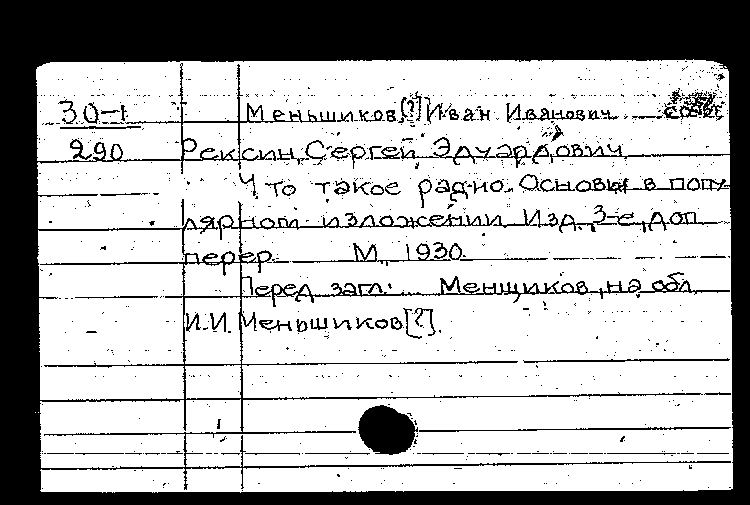 30-1 Меньшиков[?] Иван Иванович
290 Рексин, Сергей Эдуардович
Что такое радио. Основы в попу-
лярном изложении. Изд. 3-е, доп.
перер. М., 1930.
Перед загл.: ... Менщиков, на обл.
И.И. Меньшиков[?].